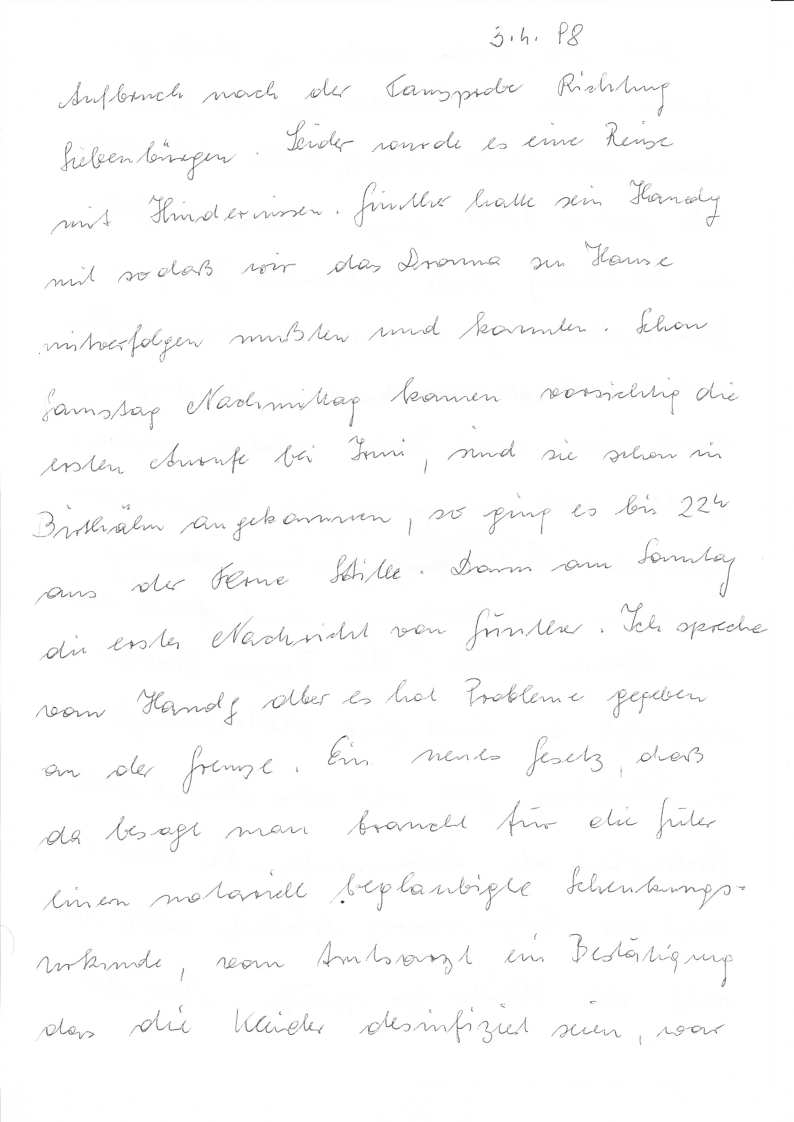 3.4.98
Aufbruch nach der Tanzprobe Richtung
Siebenbürgen. Leider wurde es eine Reise
mit Hindernissen. Günther hatte sein Handy
mit sodaß wir das Drama zu Hause
mitverfolgen mußten und konnten. Schon
Samstag Nachmittag kamen vorsichtig die
ersten Anrufe bei Inni, sind sie schon in
Birthälm angekommen, so ging es bis 22h
aus der Ferne Stille. Dann am Sonntag
die erste Nachricht von Günther. Ich spreche
vom Handy aber es hat Probleme gegeben
an der Grenze. Ein neues Gesetz, daß
da besagt man braucht für die Güter
einen notariell beglaubigte Schenkungs-
urkunde, vom Amtsarzt ein Bestätigung
das die Kleider desinfiziert seien, war